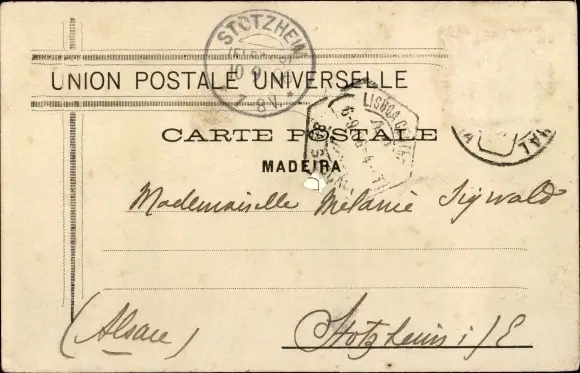 STOTZHEIM
UNION POSTALE UNIVERSELLE
CARTE POSTALE
MADEIRA
LISBOA
Mademoiselle Mélanie Sigwald
(Alsace)
Stotzheim i/E